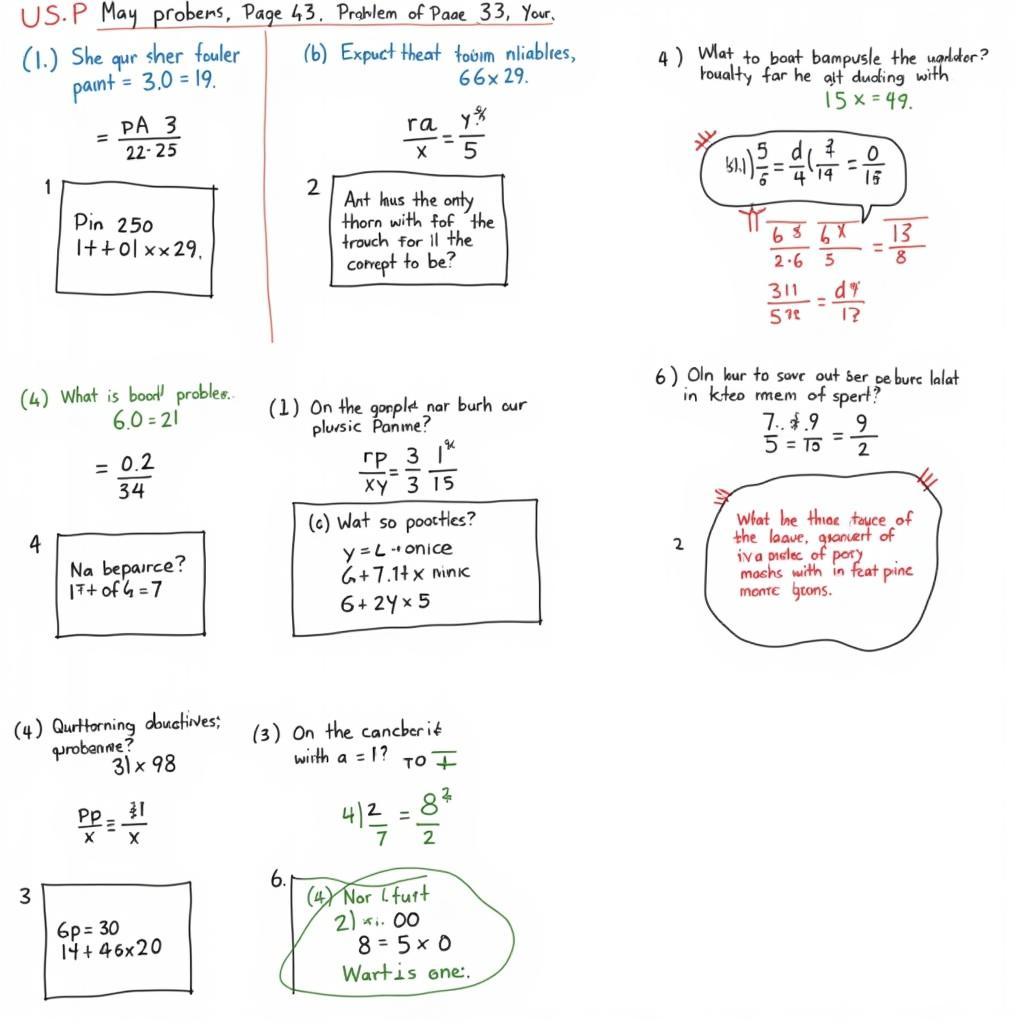 US.P May probems, Page 43. Prahlem of Paae 33, Your.
(1.) She qur sher fouler
pamt = 3.0 = 19.
= pA 3
22·25
1
Pin 250
1++01 xx29.
(b) Expuct theat toüım nliablres,
66x29.
ra = y
x 5
2
Ant hus the onty
thorn with fof the
trouch for il the
corrept to be?
4) Wlat to boat bampusle the
toualty far he ait duding with
15 x = 49.
5 = d = 0
6 4 14 15
6 8 6 x = 13
2·6 5 8
311 = d
5 1?
(4) What is boodl probler..
6.0 = 21
= 0.2
34
4
Na bepairce?
of = 7
(1) On the gonplet nar burh our
plursic Panme?
rp = 3 1
xy 3 15
(c) Wat so pooctles?
y = L onice
6+7.1+ x ninic
6 + 24 x 5
6) Oln hur to save out ser pe burc lalat
in kteo rmem of spert?
7.. .9 = 9
5 = 15 2
2
What he thiae tayce of
the laave, of
iva of pory
mochs with in feat pine
monre grons.
(4) Qurttorning dbuctives;
probenme?
31 x 98
Pp ≡ 1
x x
3
6p = 30
14 + 46x20
(3) On the cancberit
wirth a = 1? TO I
4) 2 = 8
7 2
6.
(4) Nor lfurt
2) xi. 00
8 = 5 x 0
Wart is one:.